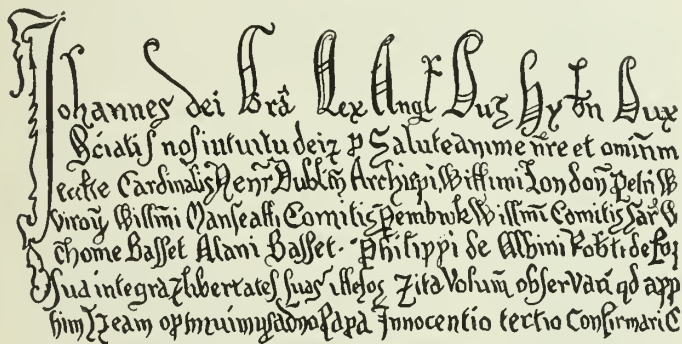 Johannes dei Grã Rex Angł Dux Hybn Dux
Sciatis nos intuitu dei ⁊ p Salute anime n̄re et omium
eccłie Cardinalis Henr̃ Dublin̄ Archiep̄i Willimi London̄ Petri W
viroꝝ Willim̄i Marescalli Comitis Pembrok Willim̄i Comitis Sar̄ W
Thome Basset Alani Basset Philippi de Albini Rob̄ti de
sua integra ⁊ libertates suas illesas ⁊ ita volum̄ observari qd app
him ⁊ eam optinuimus a dno Papa Innocentio tertio Confirmari C